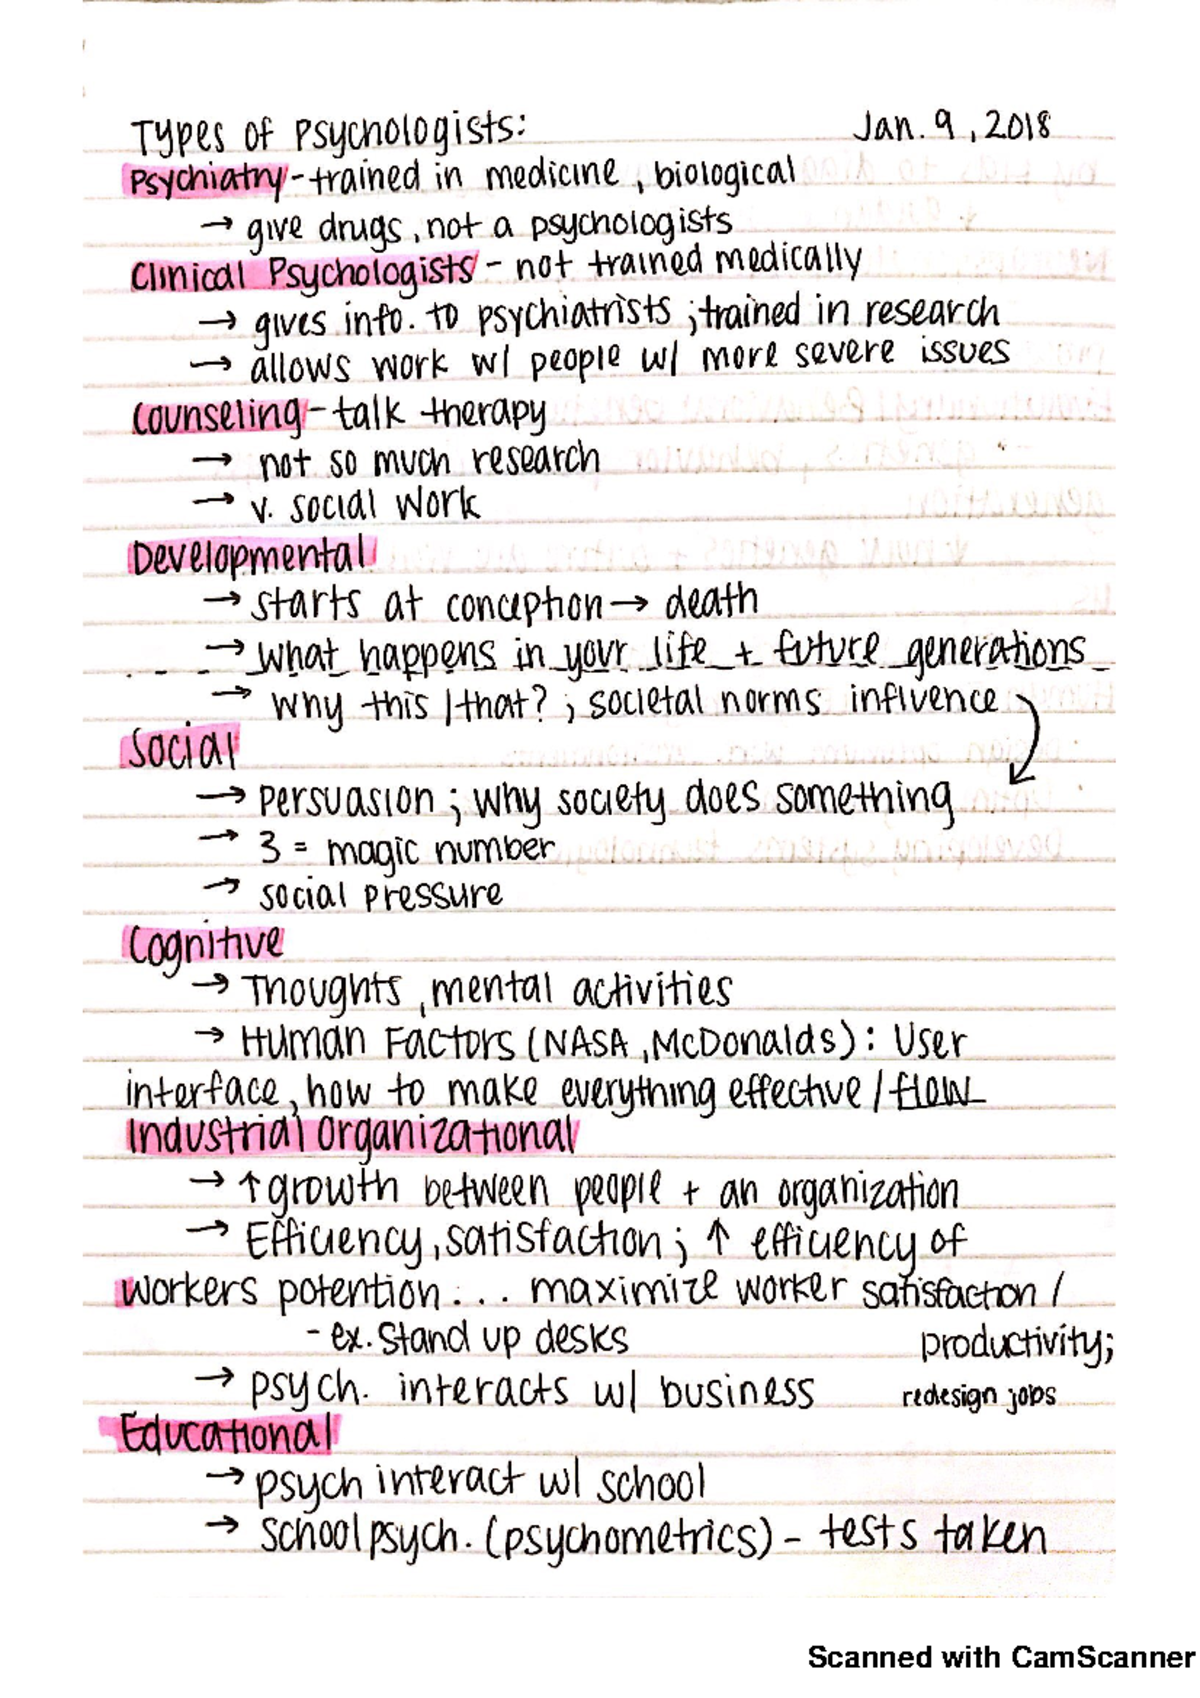 Types of Psychologists: Jan. 9, 2018
Psychiatry - trained in medicine, biological
→ give drugs, not a psychologists
Clinical Psychologists - not trained medically
→ gives info. to psychiatrists ; trained in research
→ allows work w/ people w/ more severe issues
Counseling - talk therapy
→ not so much research
→ v. social work
Developmental
→ starts at conception → death
→ what happens in your life + future generations
→ why this / that? ; societal norms influence
Social
→ persuasion ; why society does something
→ 3 = magic number
→ social pressure
Cognitive
→ Thoughts, mental activities
→ Human Factors (NASA, McDonalds): User
interface, how to make everything effective / flow
Industrial Organizational
→ ↑ growth between people + an organization
→ Efficiency, satisfaction ; ↑ efficiency of
workers potention... maximize worker satisfaction /
- ex. Stand up desks productivity;
→ psych. interacts w/ business redesign jobs
Educational
→ psych interact w/ school
→ school psych. (psychometrics) - tests taken
Scanned with CamScanner